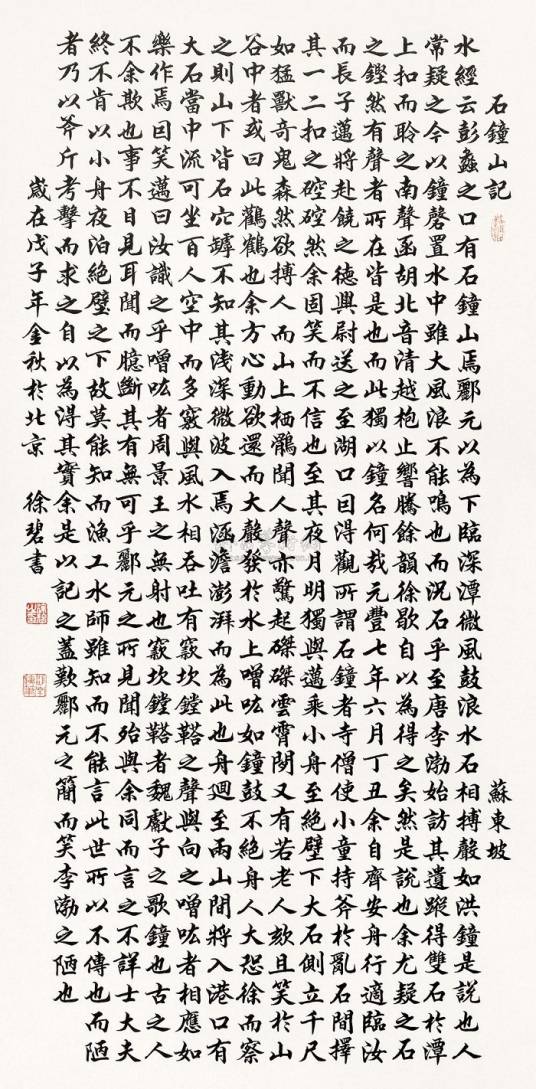 石鐘山記 蘇東坡
水經云彭蠡之口有石鐘山焉酈元以為下臨深潭微風鼓浪水石相搏聲如洪鐘是說也人
常疑之今以鐘磬置水中雖大風浪不能鳴也而況石乎至唐李渤始訪其遺蹤得雙石於潭
上扣而聆之南聲函胡北音清越枹止響騰餘韻徐歇自以為得之矣然是說也余尤疑之石
之鏗然有聲者所在皆是也而此獨以鐘名何哉元豐七年六月丁丑余自齊安舟行適臨汝
而長子邁將赴饒之德興尉送之至湖口因得觀所謂石鐘者寺僧使小童持斧於亂石間擇
其一二扣之硿硿然余固笑而不信也至其夜月明獨與邁乘小舟至絕壁下大石側立千尺
如猛獸奇鬼森然欲搏人而山上栖鶻聞人聲亦驚起磔磔雲霄間又有若老人欬且笑於山
谷中者或曰此鸛鶴也余方心動欲還而大聲發於水上噌吰如鐘鼓不絕舟人大恐徐而察
之則山下皆石穴罅不知其淺深微波入焉涵澹澎湃而為此也舟迴至兩山間將入港口有
大石當中流可坐百人空中而多竅與風水相吞吐有窾坎鏜鞳之聲與向之噌吰者相應如
樂作焉因笑邁曰汝識之乎噌吰者周景王之無射也窾坎鏜鞳者魏獻子之歌鐘也古之人
不余欺也事不目見耳聞而臆斷其有無可乎酈元之所見聞殆與余同而言之不詳士大夫
終不肯以小舟夜泊絕壁之下故莫能知而漁工水師雖知而不能言此世所以不傳也而陋
者乃以斧斤考擊而求之自以為得其實余是以記之蓋歎酈元之簡而笑李渤之陋也
歲在戊子年金秋於北京 徐碧書